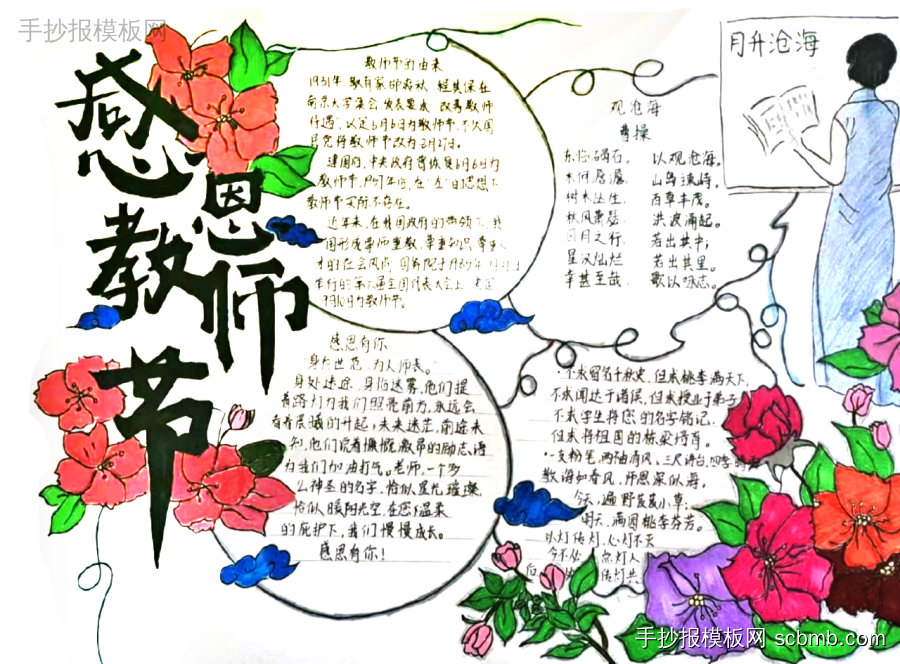 手抄报模板网
感恩教师节
教师节的由来
1931年,教育家邰爽秋、程其保在
南京大学集会,发表要求"改善教师
待遇",议定6月6日为教师节,不久国
民党将教师节改为8月27日。
建国后,中央政府曾恢复6月6日为
教师节,1957年后,在"左"的思想下
教师节实际不存在。
近年来,在我国政府的带领下,我
国形成尊师重教,尊重知识,尊重人
才的社会风尚,
举行的第六届全国代表大会上,
9月10日为教师节。
观沧海
曹操
东临碣石, 以观沧海。
水何澹澹, 山岛竦峙。
树木丛生, 百草丰茂。
秋风萧瑟, 洪波涌起。
日月之行, 若出其中;
星汉灿烂, 若出其里。
幸甚至哉, 歌以咏志。
月升沧海
感恩有你
"身为世范,为人师表。"
身处迷途,身陷迷雾,他们提
着路灯为我们照亮前方,永远会
有着晨曦的升起;未来迷茫,前途未
知,他们说着慷慨激昂的励志语
为我们加油打气。老师,一个多
么神圣的名字,恰似星光璀璨,
恰似暖阳光空,在您温柔
的庇护下,我们慢慢成长。
感恩有你!
·不求留名千秋史,但求桃李满天下,
不求闻达于诸侯,但求授业于弟子
不求学生将您的名字铭记,
但求将祖国的栋梁培育。
·一支粉笔,两袖清风,三尺讲台,四季
教诲如春风,师恩深似海。
今天,遍野莨莨小草,
明天,满园桃李芬芳。
以灯传灯,心灯不灭
点灯人
传灯共
手抄报模板网 scbmb.com